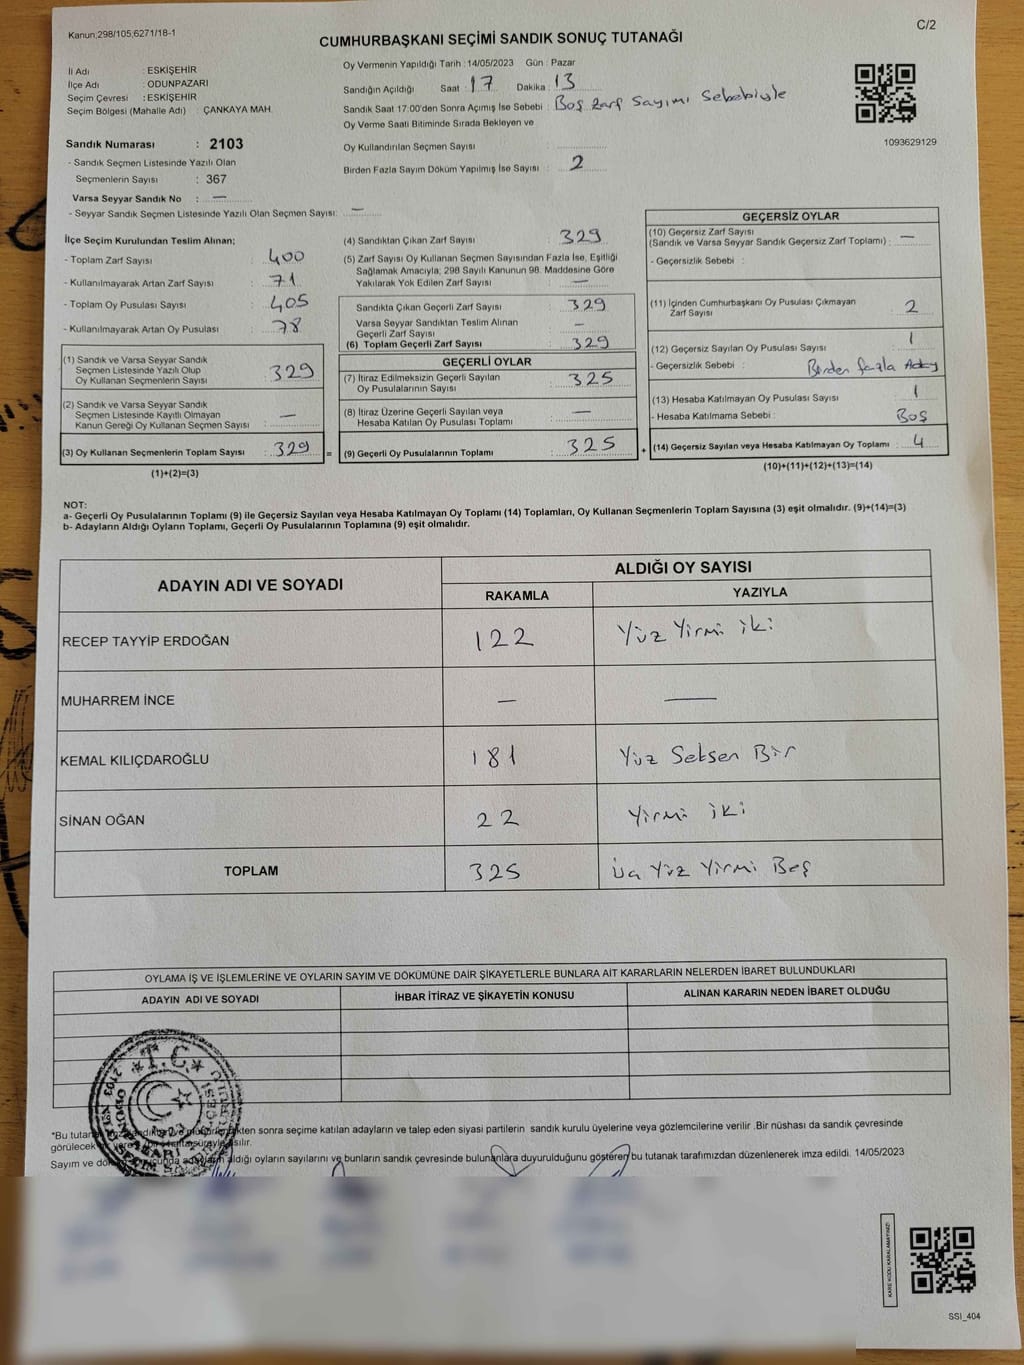 Kanun;298/105;6271/18-1
C/2
CUMHURBAŞKANI SEÇİMİ SANDIK SONUÇ TUTANAĞI
İli Adı : ESKİŞEHİR
İlçe Adı : ODUNPAZARI
Seçim Çevresi : ESKİŞEHİR
Seçim Bölgesi (Mahalle Adı) : ÇANKAYA MAH.
Oy Vermenin Yapıldığı Tarih : 14/05/2023 Gün : Pazar
Sandığın Açıldığı Saat : 17 Dakika : 13
Sandık Saat 17:00'den Sonra Açımış İse Sebebi : Boş Zarf Sayımı Sebebiyle
Oy Verme Saati Bitiminde Sırada Bekleyen ve
Oy Kullandırılan Seçmen Sayısı :
Birden Fazla Sayım Döküm Yapılmış İse Sayısı : 2
1093629129
Sandık Numarası : 2103
- Sandık Seçmen Listesinde Yazılı Olan
Seçmenlerin Sayısı : 367
Varsa Seyyar Sandık No : —
- Seyyar Sandık Seçmen Listesinde Yazılı Olan Seçmen Sayısı: —
İlçe Seçim Kurulundan Teslim Alınan;
- Toplam Zarf Sayısı : 400
- Kullanılmayarak Artan Zarf Sayısı : 71
- Toplam Oy Pusulası Sayısı : 405
- Kullanılmayarak Artan Oy Pusulası : 78
(1) Sandık ve Varsa Seyyar Sandık
Seçmen Listesinde Yazılı Olup
Oy Kullanan Seçmenlerin Sayısı : 329
(2) Sandık ve Varsa Seyyar Sandık
Seçmen Listesinde Kayıtlı Olmayan
Kanun Gereği Oy Kullanan Seçmen Sayısı : —
(3) Oy Kullanan Seçmenlerin Toplam Sayısı : 329 =
(1)+(2)=(3)
(4) Sandıktan Çıkan Zarf Sayısı : 329
(5) Zarf Sayısı Oy Kullanan Seçmen Sayısından Fazla İse, Eşitliği
Sağlamak Amacıyla; 298 Sayılı Kanunun 98. Maddesine Göre
Yakılarak Yok Edilen Zarf Sayısı : —
Sandıkta Çıkan Geçerli Zarf Sayısı : 329
Varsa Seyyar Sandıktan Teslim Alınan
Geçerli Zarf Sayısı : —
(6) Toplam Geçerli Zarf Sayısı : 329
GEÇERLİ OYLAR
(7) İtiraz Edilmeksizin Geçerli Sayılan
Oy Pusulalarının Sayısı : 325
(8) İtiraz Üzerine Geçerli Sayılan veya
Hesaba Katılan Oy Pusulası Toplamı : —
(9) Geçerli Oy Pusulalarının Toplamı : 325 +
GEÇERSİZ OYLAR
(10) Geçersiz Zarf Sayısı
(Sandık ve Varsa Seyyar Sandık Geçersiz Zarf Toplamı) : —
- Geçersizlik Sebebi :
(11) İçinden Cumhurbaşkanı Oy Pusulası Çıkmayan
Zarf Sayısı : 2
(12) Geçersiz Sayılan Oy Pusulası Sayısı : 1
- Geçersizlik Sebebi : Birden fazla Aday
(13) Hesaba Katılmayan Oy Pusulası Sayısı : 1
- Hesaba Katılmama Sebebi : Boş
(14) Geçersiz Sayılan veya Hesaba Katılmayan Oy Toplamı : 4
(10)+(11)+(12)+(13)=(14)
NOT:
a- Geçerli Oy Pusulalarının Toplamı (9) ile Geçersiz Sayılan veya Hesaba Katılmayan Oy Toplamı (14) Toplamları, Oy Kullanan Seçmenlerin Toplam Sayısına (3) eşit olmalıdır. (9)+(14)=(3)
b- Adayların Aldığı Oyların Toplamı, Geçerli Oy Pusulalarının Toplamına (9) eşit olmalıdır.
ADAYIN ADI VE SOYADI
ALDIĞI OY SAYISI
RAKAMLA
YAZIYLA
RECEP TAYYİP ERDOĞAN 122 Yüz Yirmi iki
MUHARREM İNCE — —
KEMAL KILIÇDAROĞLU 181 Yüz Seksen Bir
SİNAN OĞAN 22 Yirmi iki
TOPLAM 325 Üç Yüz Yirmi Beş
OYLAMA İŞ VE İŞLEMLERİNE VE OYLARIN SAYIM VE DÖKÜMÜNE DAİR ŞİKAYETLERLE BUNLARA AİT KARARLARIN NELERDEN İBARET BULUNDUKLARI
ADAYIN ADI VE SOYADI
İHBAR İTİRAZ VE ŞİKAYETİN KONUSU
ALINAN KARARIN NEDEN İBARET OLDUĞU
T.C.
2103
*Bu tutanak sonra seçime katılan adayların ve talep eden siyasi partilerin sandık kurulu üyelerine veya gözlemcilerine verilir .Bir nüshası da sandık çevresinde
görülecek asılır.
Sayım ve aldığı oyların sayılarını ve bunların sandık çevresinde bulunanlara duyurulduğunu gösteren bu tutanak tarafımızdan düzenlenerek imza edildi. 14/05/2023
KARE KODU KARALAMAYINIZ!
SSI_404